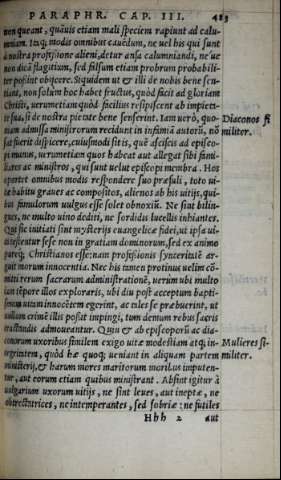 PARAPHR. CAP. III. 423
non queant, quāuis etiam mali speciem rapiunt ad calu-
mniam. Itaq; modis omnibus cauēdum, ne uel his qui sunt
à nostra professione alieni, detur ansa calumniandi, ne'ue
non dicā flagitium, sed falsum etiam probrum probabili-
ter possint obijcere. Siquidem ut & illi de nobis bene sen-
tiant, non solum hoc habet fructus, quòd facit ad gloriam
Christi, uerumetiam quòd facilius resipiscent ab impieta-
te sua, si de nostra pietate bene senserint. Iam uerò, quo-
niam admissa ministrorum recidunt in infamiā autorū, nō
sat fuerit dispicere, cuiusmodi sit is, quē asciscis ad episco-
pi munus, uerumetiam quos habeat aut allegat sibi fami-
liares ac ministros, qui sunt uelut episcopi membra. Hos
oportet omnibus modis respondere suo præsuli, toto ui-
tæ habitu graues ac compositos, alienos ab his uitijs, qui-
bus famulorum uulgus esse solet obnoxiū. Ne sint bilin-
gues, ne multo uino dediti, ne sordidis lucellis inhiantes.
Qui sic initiati sint mysterijs euangelicæ fidei, ut ipsa ui-
ta testentur sese non in gratiam dominorum, sed ex animo
pareq; Christianos esse: nam professionis synceritatē ar-
guit morum innocentia. Nec his tamen protinus uelim cō-
mitti rerum sacrarum administrationē, uerùm ubi multo
iam tēpore illos exploraris, ubi diu post acceptum bapti-
smum uitam innocētem egerint, ac tales se præbuerint, ut
nullum crimē illis possit impingi, tum demum rebus sacris
tractandis admoueantur. Quin & ab episcoporū ac dia-
conorum uxoribus similem exigo uitæ modestiam atq; in-
tegritatem, quòd hæ quoq; ueniant in aliquam partem
ministerij, & harum mores maritorum moribus imputen-
tur, aut eorum etiam quibus ministrant. Absint igitur à
uulgarium uxorum uitijs, ne sint leues, aut ineptæ, ne
obtrectatrices, ne intemperantes, sed sobriæ: ne futiles
Hhh 2 aut
Diaconos si
militer.
Mulieres si-
militer.